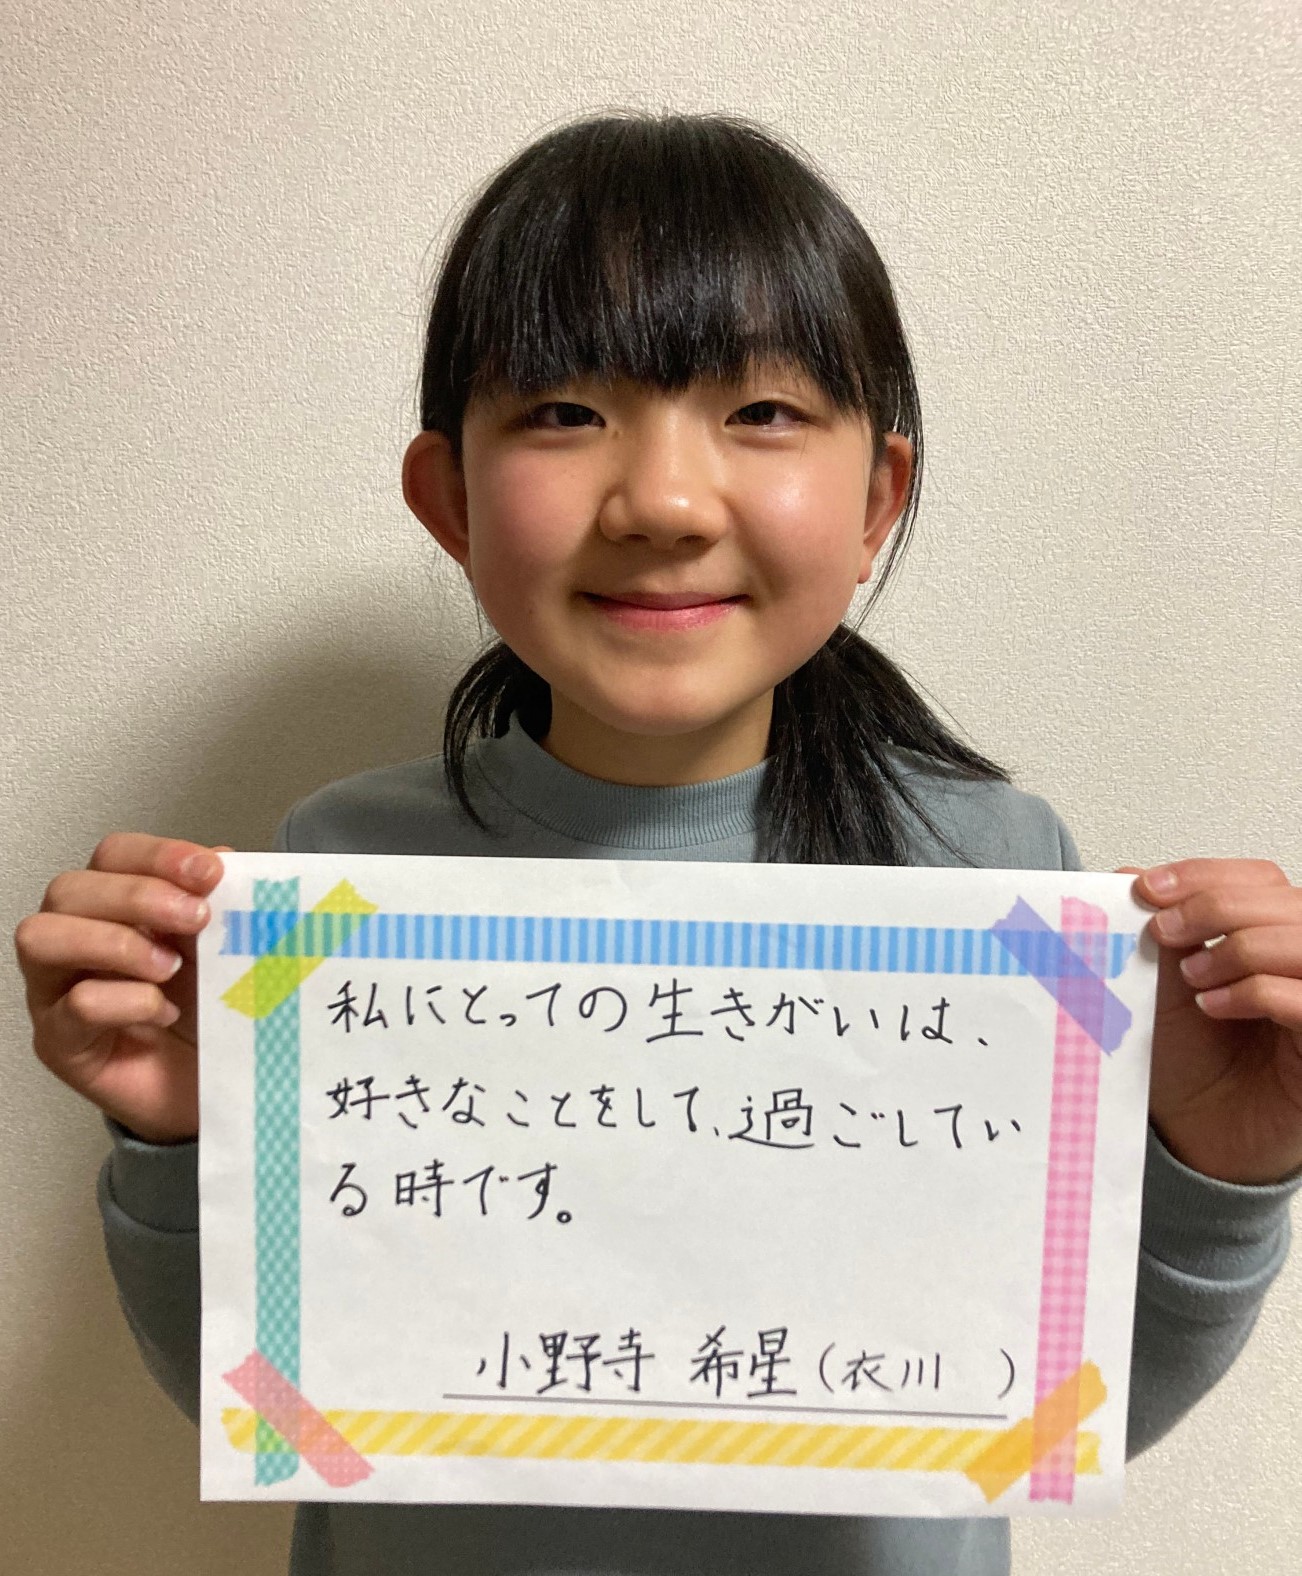 私にとっての生きがいは、
好きなことをして、過ごしてい
る時です。
小野寺 希星(衣川 )